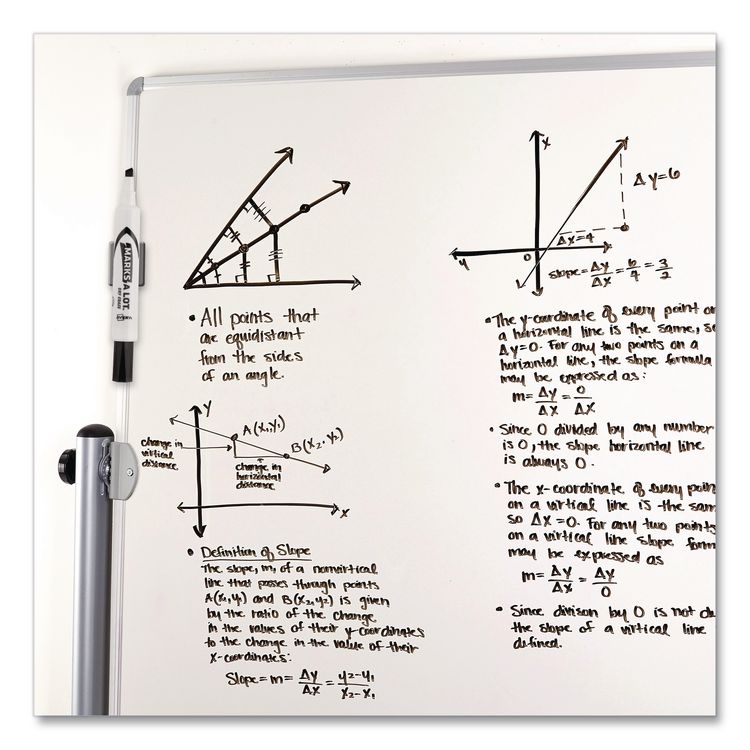 MARKS A LOT
• All points that
are equidistant
from the sides
of an angle.
Y
A(X₁,Y₁)
B(X₂,Y₂)
change in
virtical
distance
change in
horizontal
distance
X
• Definition of Slope
The slope, m, of a nonvirtical
line that passes through points
A(X₁,Y₁) and B(X₂,Y₂) is given
by the ratio of the change
in the values of their y-coordinates
to the change in the value of their
X-coordinates:
Slope = m = ΔY/ΔX = y₂-y₁/X₂-X₁
X
ΔY=6
ΔX=4
y
0
slope = ΔY/ΔX = 6/4 = 3/2
• The y-coordinate of every point on
a horizontal line is the same, so
ΔY=0. For any two points on a
horizontal line, the slope formula
may be expressed as:
m= ΔY/ΔX = 0/ΔX
• Since 0 divided by any number
is 0, the slope horizontal line
is always 0.
• The x-coordinate of every poin
on a virtical line is the sam
so ΔX=0. For any two points
on a virtical line slope form
may be expressed as
m= ΔY/ΔX = ΔY/0
• Since divison by 0 is not de
the slope of a virtical line
defined.